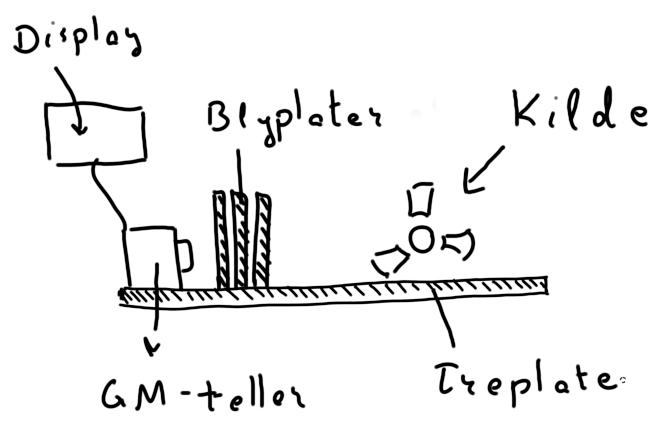 Display
Blyplater
Kilde
GM-teller
Treplate